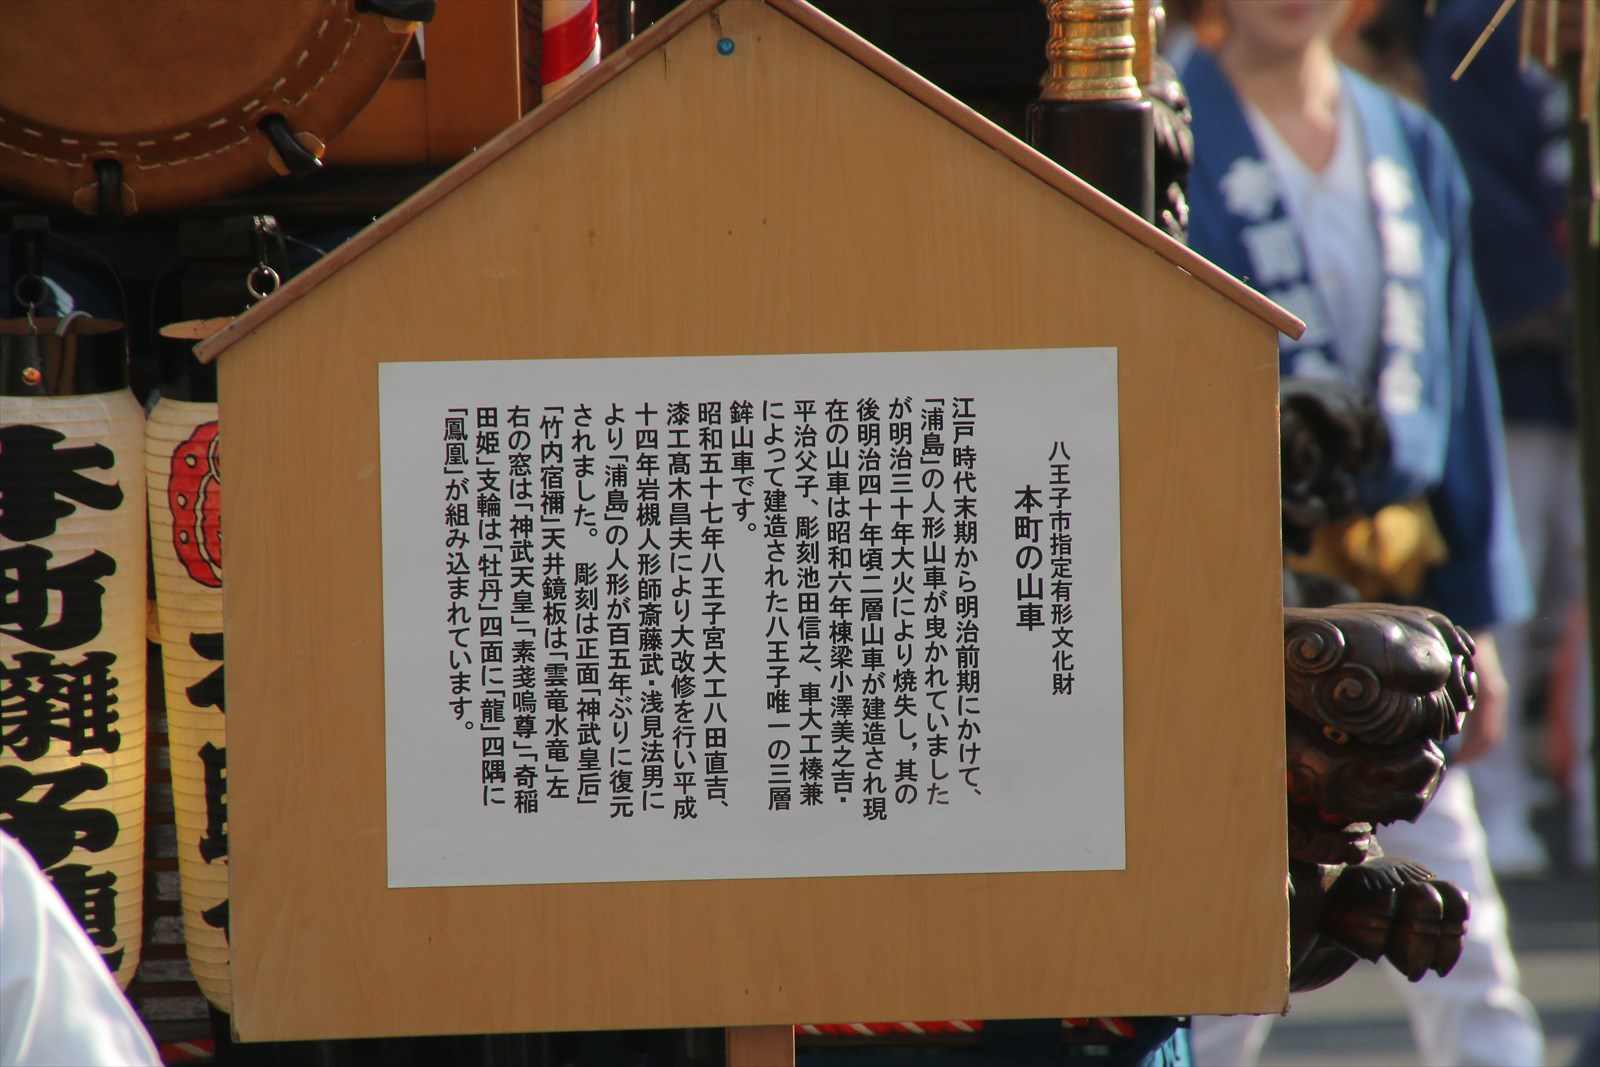 八王子市指定有形文化財
本町の山車
江戸時代末期から明治前期にかけて、
「浦島」の人形山車が曳かれていました
が明治三十年大火により焼失し，其の
後明治四十年頃二層山車が建造され現
在の山車は昭和六年棟梁小澤美之吉・
平治父子、彫刻池田信之、車大工榛兼
によって建造された八王子唯一の三層
鉾山車です。
昭和五十七年八王子宮大工八田直吉、
漆工髙木昌夫により大改修を行い平成
十四年岩槻人形師斎藤武・浅見法男に
より「浦島」の人形が百五年ぶりに復元
されました。 彫刻は正面「神武皇后」
「竹内宿禰」天井鏡板は「雲竜水竜」左
右の窓は「神武天皇」「素戔嗚尊」「奇稲
田姫」支輪は「牡丹」四面に「龍」四隅に
「鳳凰」が組み込まれています。
本町囃子連